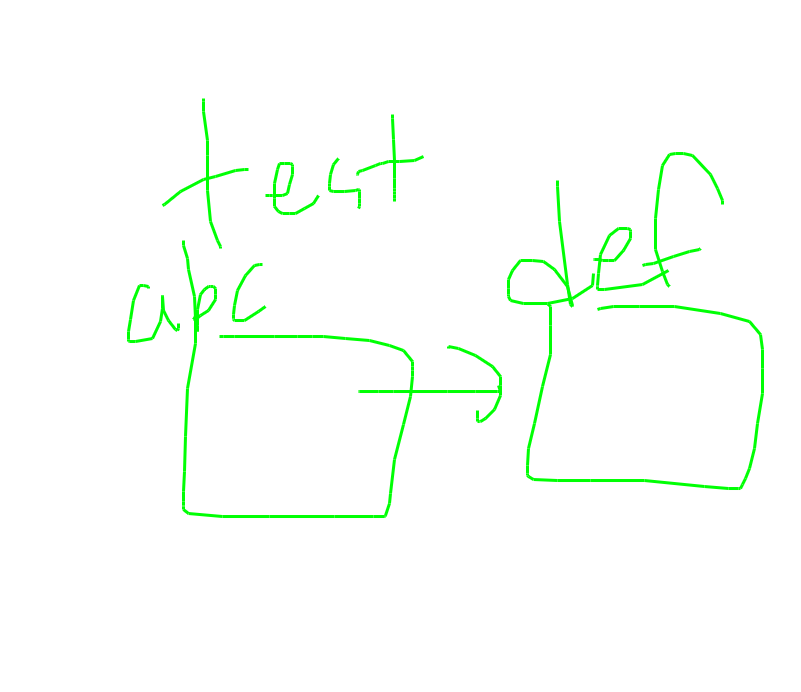 test
abc
def